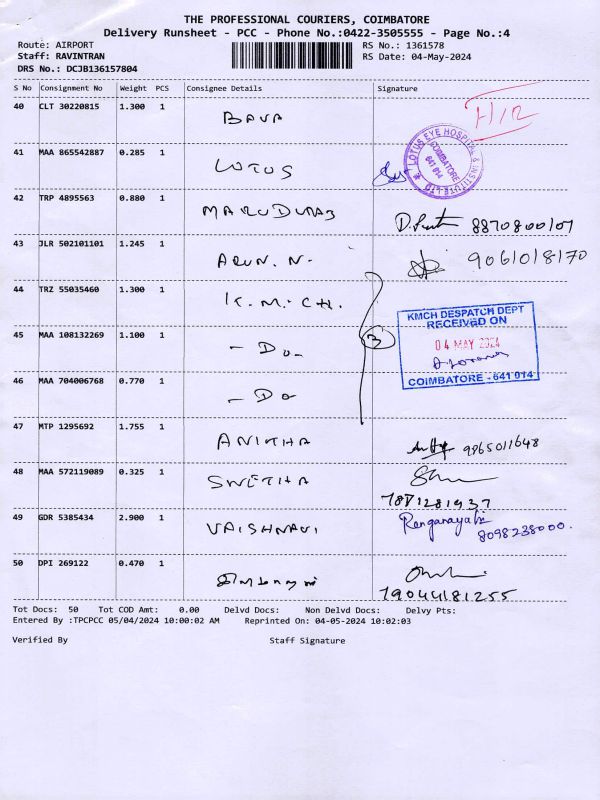 THE PROFESSIONAL COURIERS, COIMBATORE
Delivery Runsheet - PCC - Phone No.:0422-3505555 - Page No.:4
Route: AIRPORT
Staff: RAVINTRAN
DRS No.: DCJB136157804
RS No.: 1361578
RS Date: 04-May-2024
S No Consignment No Weight PCS Consignee Details Signature
40 CLT 30220815 1.300 1 BAVA H/R
41 MAA 865542887 0.285 1 LOTUS
LOTUS EYE HOSPITAL & INSTITUTE LTD
COIMBATORE
641 014
42 TRP 4895563 0.880 1 8870800107
43 JLR 502101101 1.245 1 ARUN. N. 9061018170
44 TRZ 55035460 1.300 1 K.M.CH.
45 MAA 108132269 1.100 1 - Do - 3
46 MAA 704006768 0.770 1 - Do
KMCH DESPATCH DEPT
RECEIVED ON
04 MAY 2024
COIMBATORE - 641 014
47 MTP 1295692 1.755 1 ANITHA 9865011648
48 MAA 572119089 0.325 1 SWETHA
49 GDR 5385434 2.900 1 VAISHNAVI Renganayaki
8098238000.
50 DPI 269122 0.470 1
Tot Docs: 50 Tot COD Amt: 0.00 Delvd Docs: Non Delvd Docs: Delvy Pts:
Entered By :TPCPCC 05/04/2024 10:00:02 AM Reprinted On: 04-05-2024 10:02:03
Verified By Staff Signature